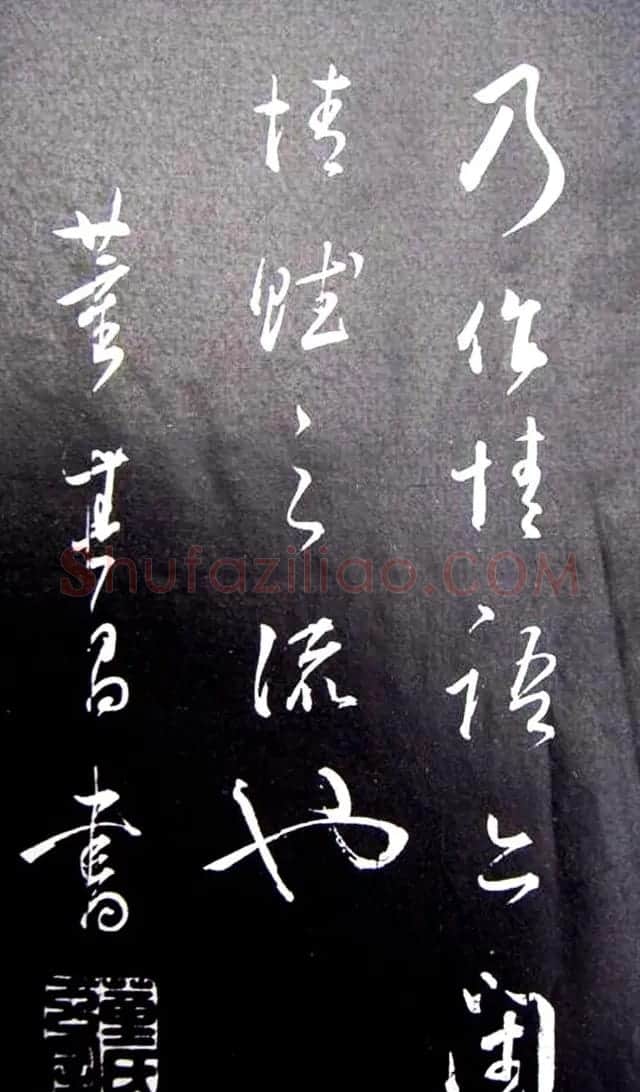 乃作情語亦閑
情賦之流也
董其昌書
董氏
Shufaziliao.COM